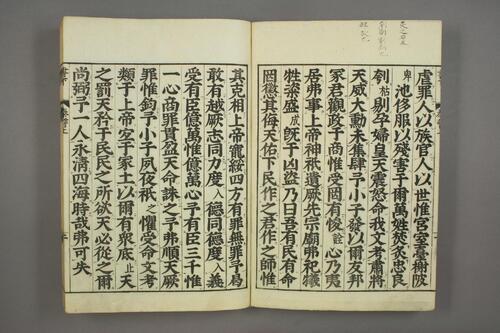 虐罪人以族官人以世惟宮室臺榭陂
卑池侈服以殘害于爾萬姓焚炙忠良
刳枯剔孕婦皇天震怒命我文考肅將
天威大勳未集肆予小子發以爾友邦
冢君觀政于商惟受罔有悛詮心乃夷
居弗事上帝神祇遺厥先宗廟弗祀犧
牲粢盛成旣于凶盜乃曰吾有民有命
罔懲其侮天佑下民作之君作之師惟
其克相上帝寵綏四方有罪無罪予曷
敢有越厥志同力度入德同德度入義
受有臣億萬惟億萬心予有臣三千惟
一心商罪貫盈天命誅之予弗順天厥
罪惟鈞予小子夙夜祗之懼受命文考
類于上帝宜于冢土以爾有衆底止天
之罰天矜于民民之所欲天必從之爾
尚弼予一人永清四海時哉弗可失